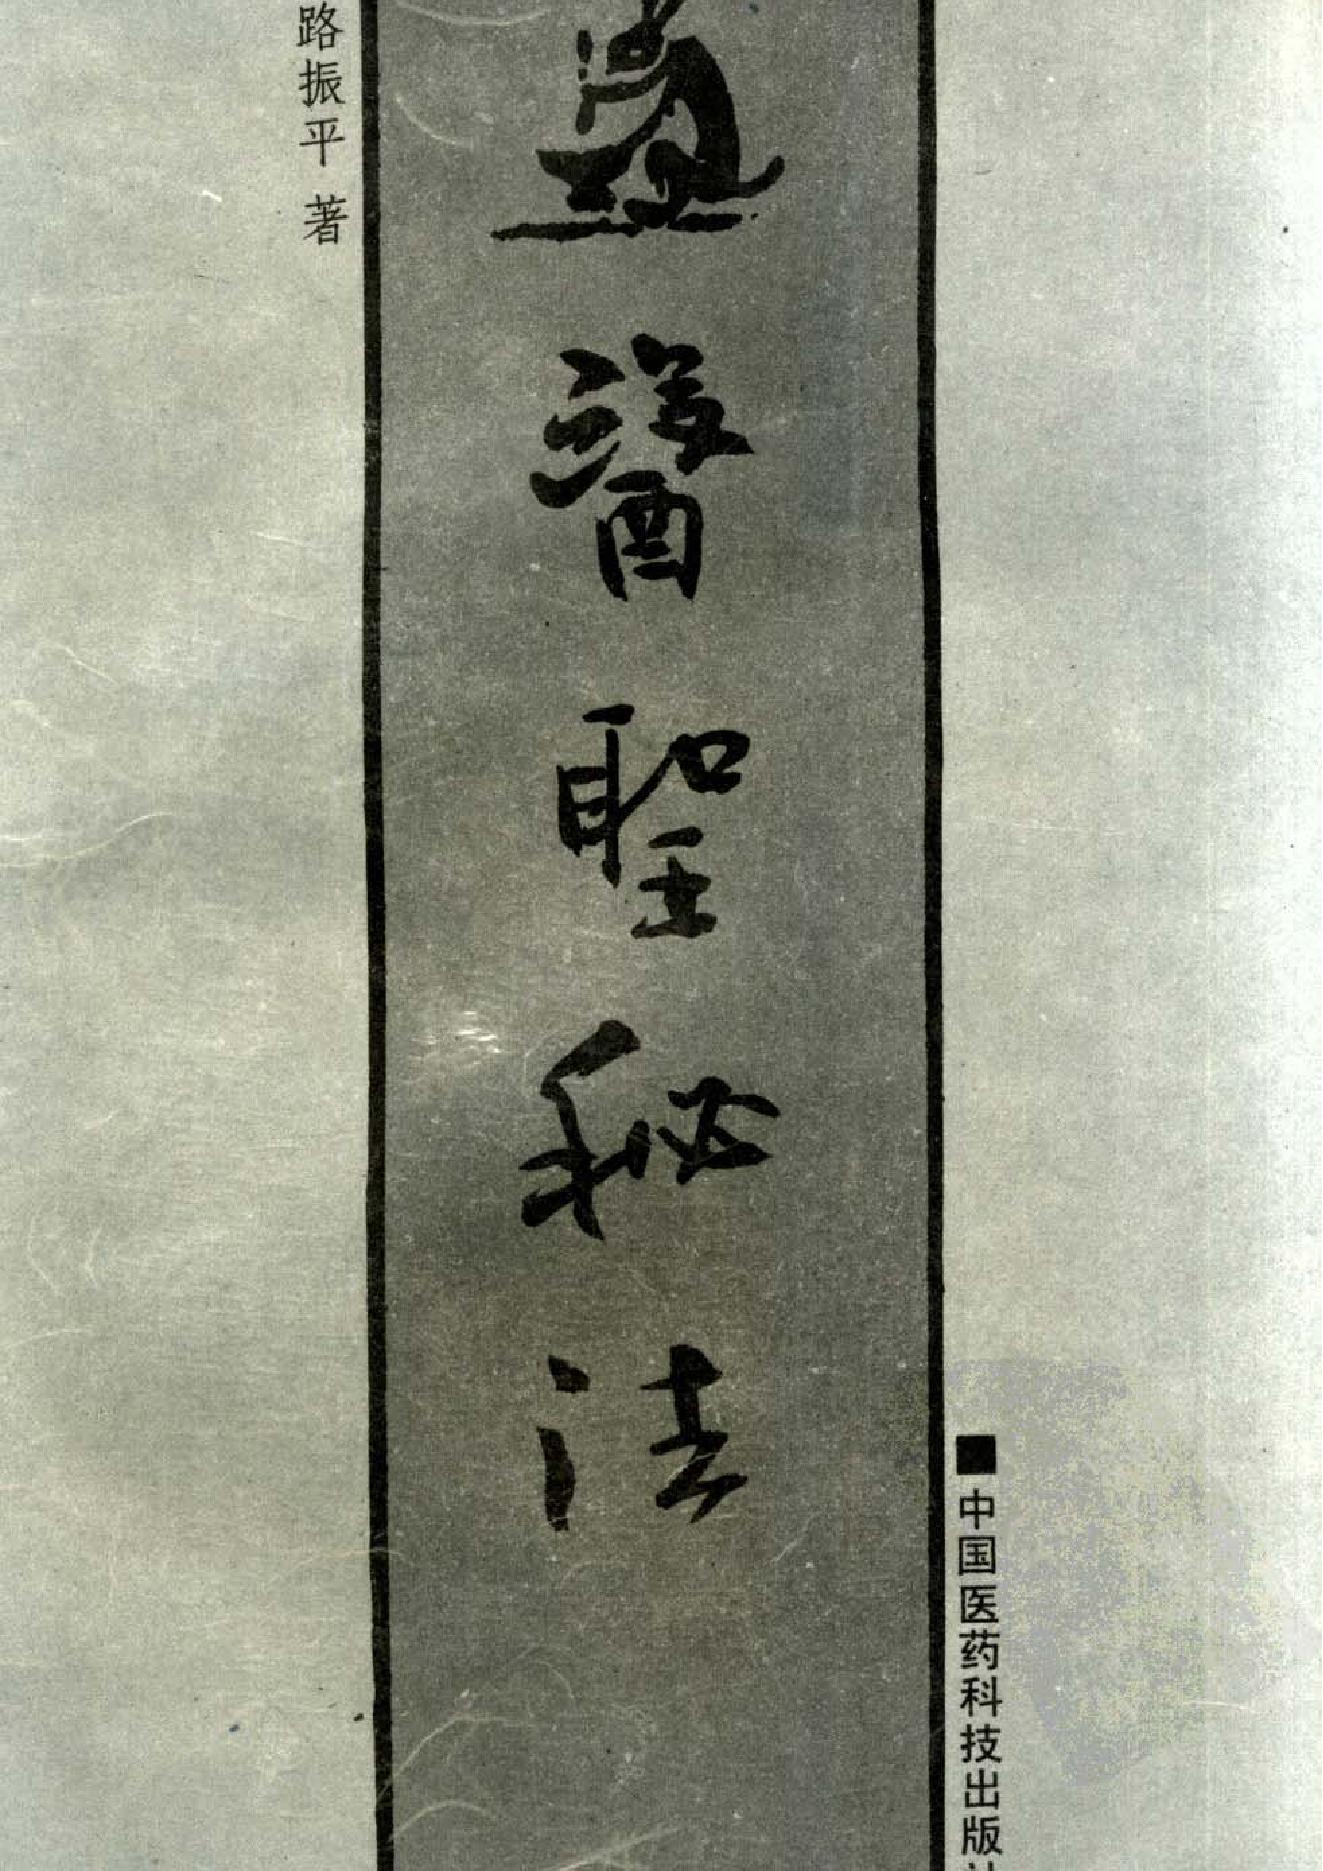 路振平 著
醫聖秘法
■中国医药科技出版